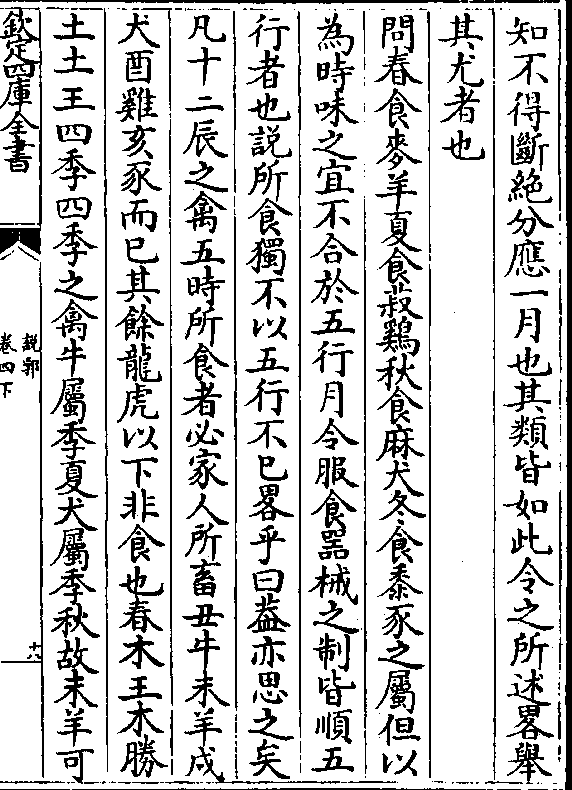 知不得斷絶分應一月也其類皆如此令之所述畧舉
其尤者也
問春食麥羊夏食菽鷄秋食麻犬冬食黍豕之屬但以
為時味之宜不合於五行月令服食器械之制皆順五
行者也説所食獨不以五行不已畧乎曰葢亦思之矣
凡十二辰之禽五時所食者必家人所畜丑牛未羊戌
犬酉雞亥豕而已其餘龍虎以下非食也春木王木勝
土土王四季四季之禽牛屬季夏犬屬季秋故未羊可
欽定四庫全書
説郛
卷四下
十八